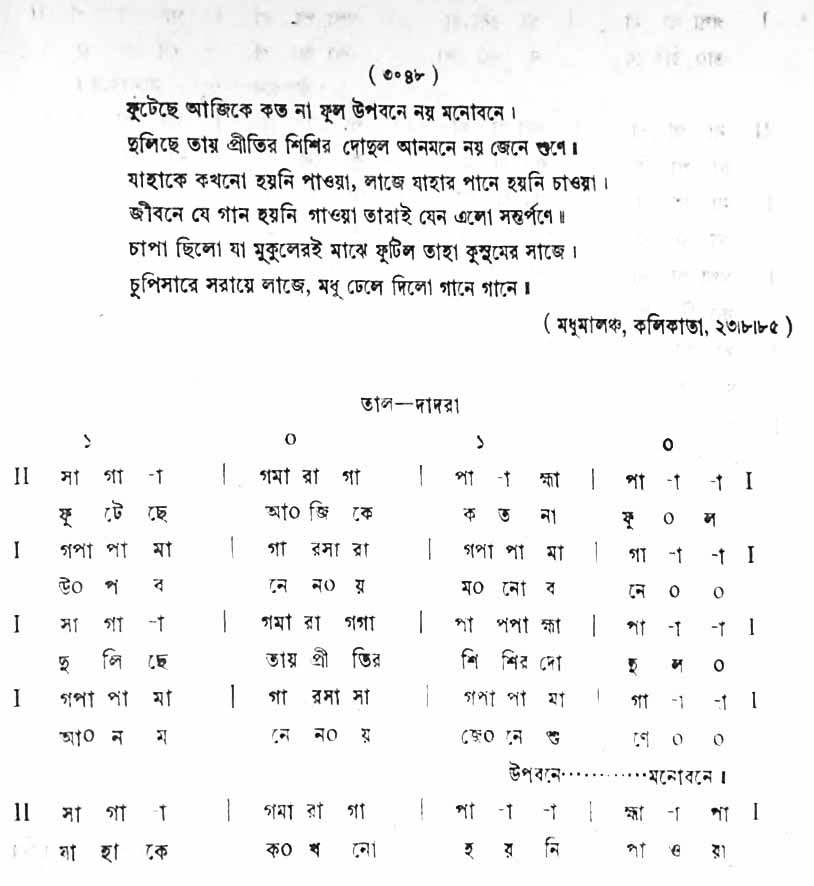 ( ৩০৪৮ )
ফুটেছে আজিকে কত না ফুল উপবনে নয় মনোবনে।
দুলিছে তায় প্রীতির শিশির দোদুল আনমনে নয় জেনে শুণে॥
যাহাকে কখনো হয়নি পাওয়া, লাজে যাহার পানে হয়নি চাওয়া।
জীবনে যে গান হয়নি গাওয়া তারাই যেন এলো সন্তর্পণে॥
চাপা ছিলো যা মুকুলেরই মাঝে ফুটিল তাহা কুসুমের সাজে।
চুপিসারে সরায়ে লাজে, মধু ঢেলে দিলো গানে গানে॥
( মধুমালঞ্চ, কলিকাতা, ২৩।৮।৮৫ )
তাল—দাদরা
১ ০ ১ ০
II সা গা -া | গমা রা গা | পা -া হ্মা | পা -া -া I
ফু টে ছে আ০ জি কে ক ত না ফু ০ ল
I গপা পা মা | গা রসা রা | গপা পা মা | গা -া -া I
উ০ প ব নে ন০ য় ম০ নো ব নে ০ ০
I সা গা -া | গমা রা গগা | পা পপা হ্মা | পা -া -া I
দু লি ছে তায় প্রী তির শি শির দো দু ল ০
I গপা পা মা | গা রসা সা | গপা পা মা | গা -া -া I
আ০ ন ম নে ন০ য় জে০ নে শু ণে ০ ০
উপবনে············মনোবনে।
II সা গা -া | গমা রা গা | পা -া -া | হ্মা -া পা I
যা হা কে ক০ খ নো হ য় নি পা ও য়া